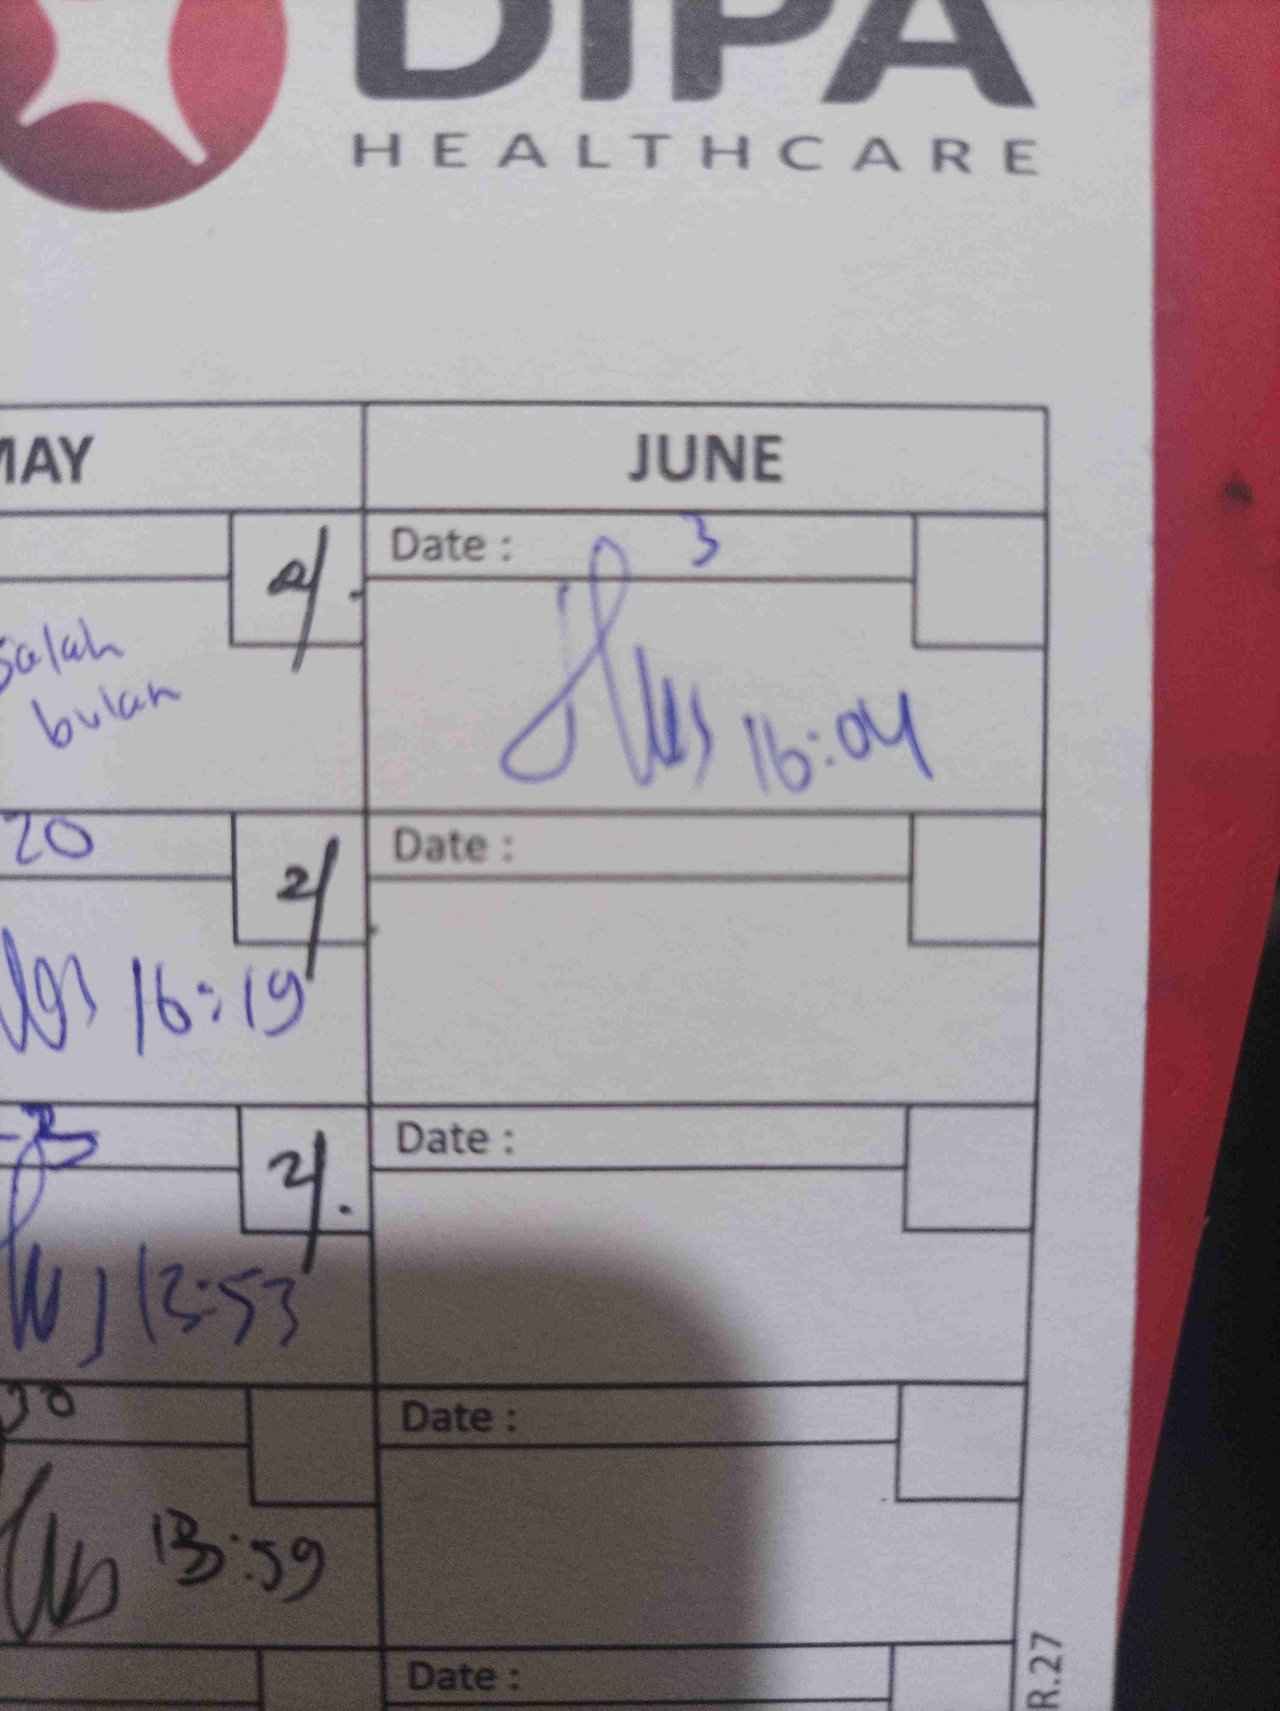 DIPA
HEALTHCARE
MAY
JUNE
Date : 3
2/.
salah
bulan
16:04
20
2/
Date :
16:19
2/.
Date :
13:53
30
Date :
13:59
Date :
R.27